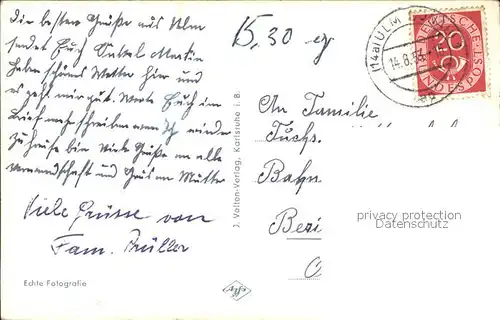 Die besten Grüße aus Ulm
sendet Euch Onkel Martin
Haben schönes Wetter hier und
es geht mir gut. Werde Euch im
Brief mehr schreiben wenn ich wieder
zuhause bin Viele Grüße an alle
Verwandtschaft und Gruß an Mutter
Viele Grüsse von
Fam. Müller
Echte Fotografie
15,30 
J. Velten-Verlag, Karlsruhe i. B.
(14a) ULM
14.8.53
DEUTSCHE
20
BUNDESPOST
An Familie
Fuchs
Bahn
Beri
privacy protection
Datenschutz